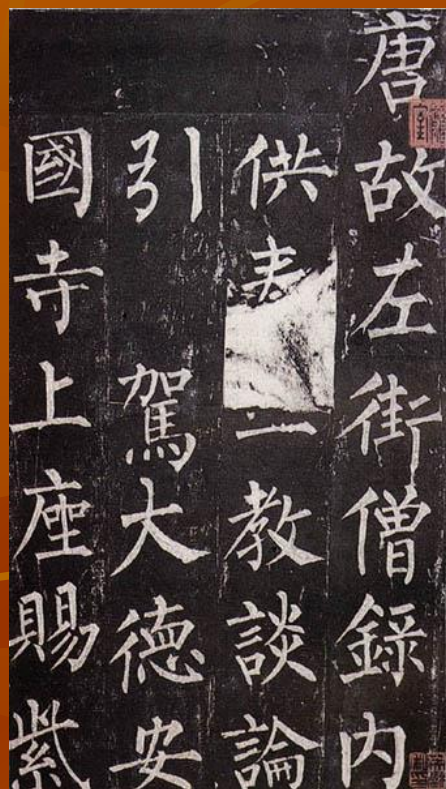 唐故左街僧録内
供教談論
引駕大德安
國寺上座賜紫